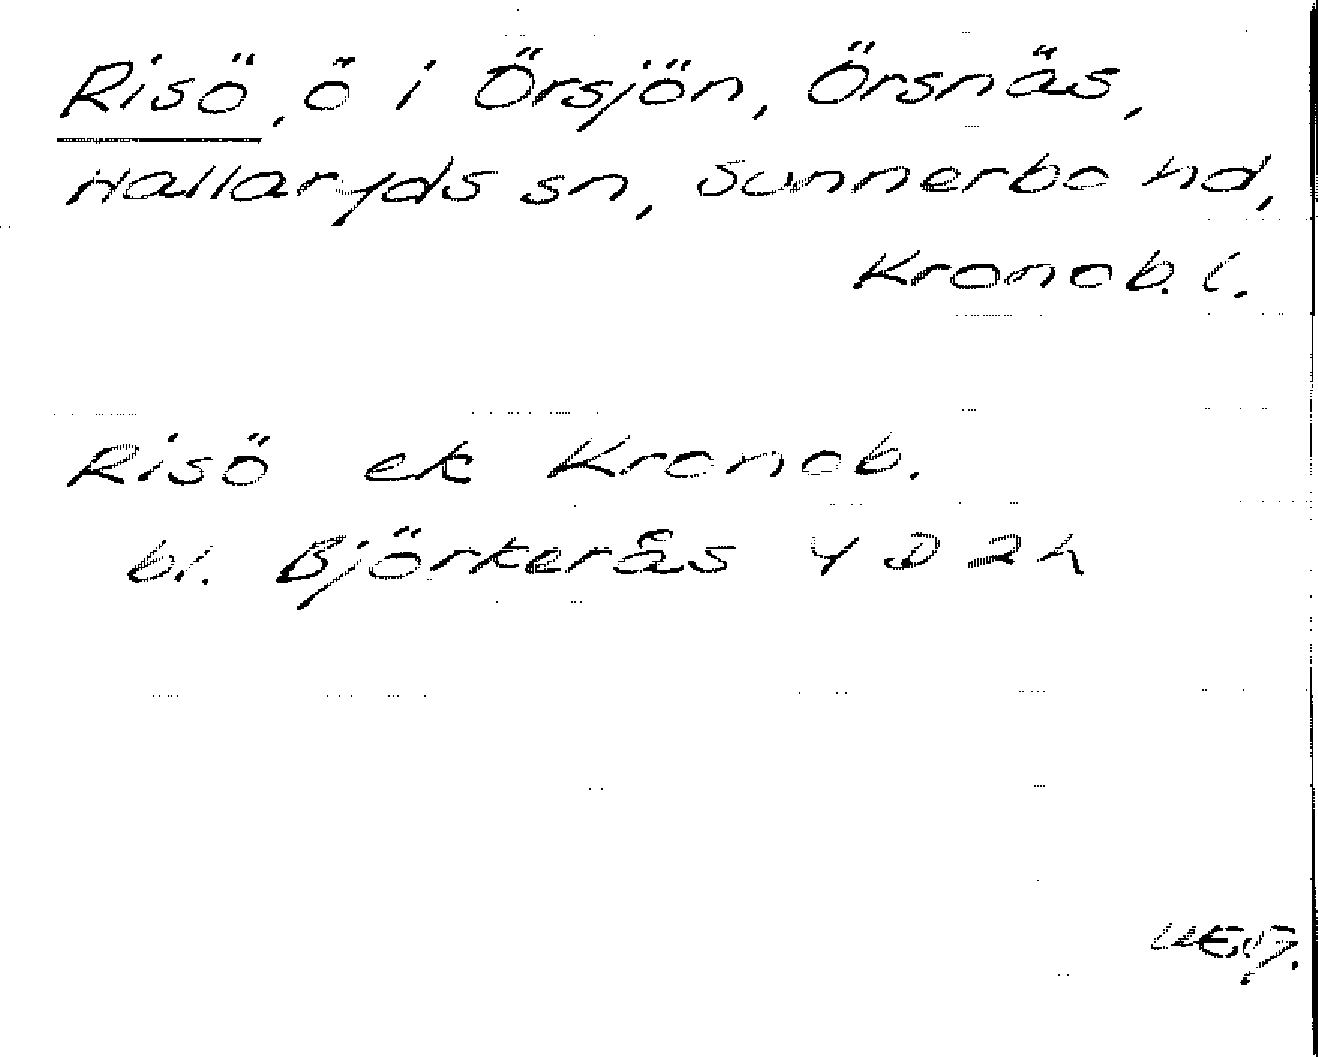 Risö, ö i Örsjön, Örsnäs,
Hallaryds sn, Sunnerbo hd,
Kronob. l.
Risö ek Kronob.
bl. Björkerås 4 D 2 h